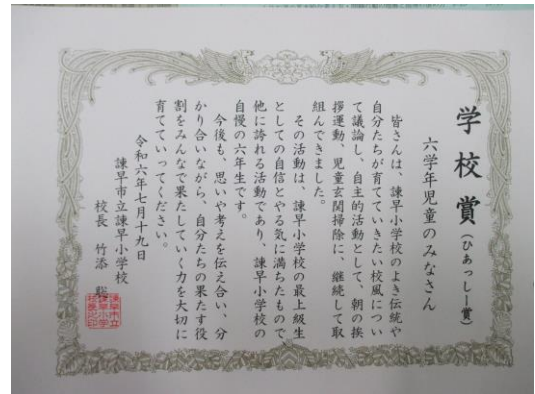 学校賞(ひあっしー賞)
六学年児童のみなさん
皆さんは、諫早小学校のよき伝統や
自分たちが育てていきたい校風につい
て議論し、自主的活動として、朝の挨
拶運動、児童玄関掃除に、継続して取
組んできました。
その活動は、諫早小学校の最上級生
としての自信とやる気に満ちたもので、
他に誇れる活動であり、諫早小学校の
自慢の六年生です。
今後も、思いや考えを伝え合い、分
かり合いながら、自分たちの果たす役
割をみんなで果たしていく力を大切に
育てていってください。
令和六年七月十九日
諫早市立諫早小学校
校長 竹添 聡